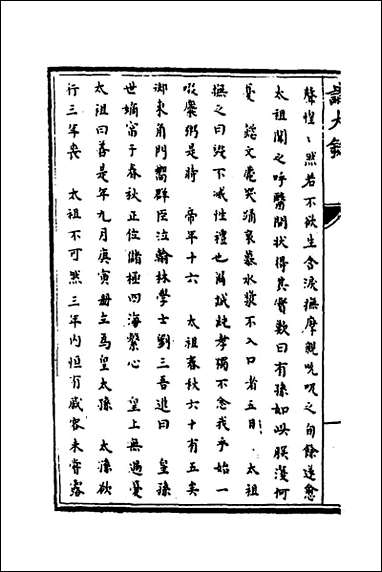 聲惶〻然若不欲生含淚撫摩親吮吸之旬餘遂愈
太祖聞之呼醫問狀得其實歎曰有孫如此朕復何
憂 懿文薨哭踊哀慕水漿不入口者五日 太祖
撫之曰毀不滅性禮也爾誠純孝獨不念我乎始一
啜糜粥是時 帝年十六 太祖春秋六十有五矣
御東角門嚮群臣泣翰林學士劉三吾進曰 皇孫
世嫡富于春秋正位儲極四海繫心 皇上無過憂
太祖曰善是年九月庚寅冊立為皇太孫 太孫欲
行三年喪 太祖不可然三年內恒有戚容未嘗露